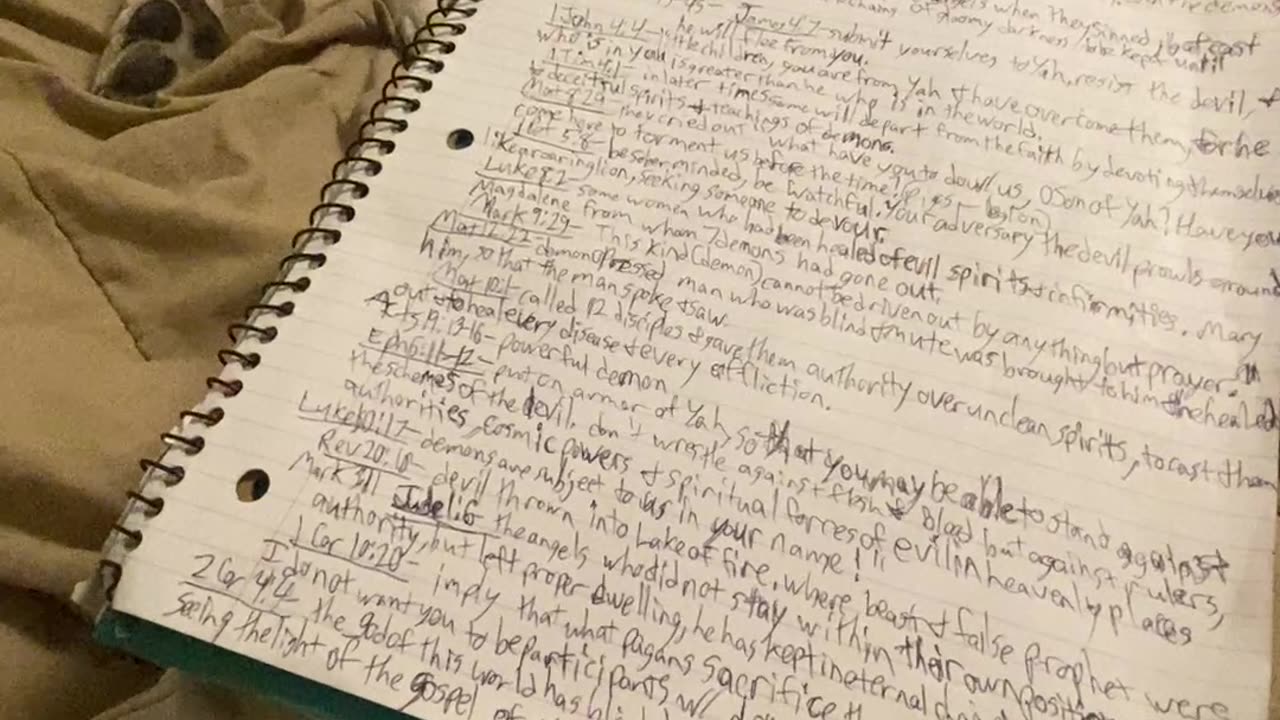 angels when they sinned, but cast
chains of gloomy darkness to be kept until
James 4:7- submit yourselves to Yah, resist the devil, &
he will flee from you.
1 John 4:4- little children, you are from Yah & have overcome them, for he
who is in you is greater than he who is in the world.
1 Tim 4:1- in later times some will depart from the faith by devoting themselves
to deceitful spirits & teachings of demons.
Mat 8:29- they cried out, what have you to do w/ us, O Son of Yah? Have you
come here to torment us before the time?
1 Pet 5:8- be sober minded, be watchful. Your adversary the devil prowls around
like a roaring lion, seeking someone to devour.
Luke 8:2 some women who had been healed of evil spirits & infirmities. Mary
Magdalene from whom 7 demons had gone out.
Mark 9:29- This kind (demon) cannot be driven out by anything but prayer.
Mat 12:22- demon oppressed man who was blind & mute was brought to him & he healed
him, so that the man spoke & saw.
Mat 10:1- called 12 disciples & gave them authority over unclean spirits, to cast them
out & to heal every disease & every affliction.
Acts 19:13-16- powerful demon
Eph 6:11-12- put on armor of Yah, so that you may be able to stand against
the schemes of the devil. don't wrestle against flesh & blood but against rulers,
authorities, cosmic powers & spiritual forces of evil in heavenly places
Luke 10:17- demons are subject to us in your name!
Rev 20:10- devil thrown into Lake of fire, where beast & false prophet were
Mark 3:11 Jude 1:6- the angels who did not stay within their own position
authority, but left proper dwelling, he has kept in eternal
1 Cor 10:20- imply that what pagans sacrifice
I do not want you to be participants w/
2 Cor 4:4 the god of this world has
seeing the light of the gospel of